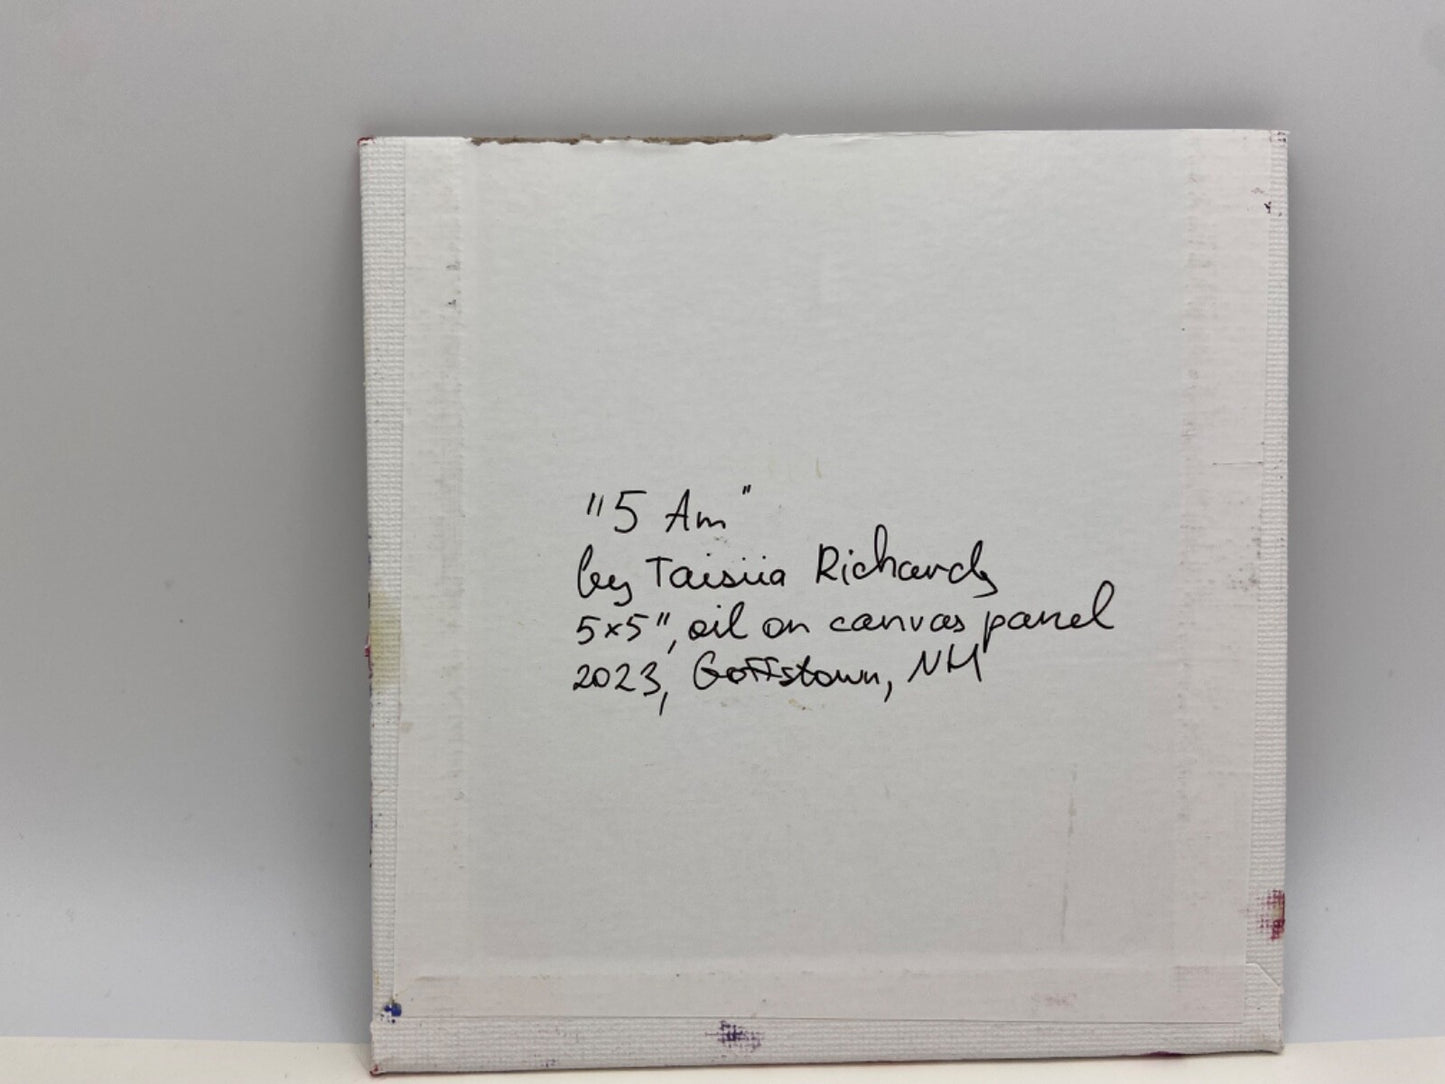 "5 Am"
by Taisiia Richards
5x5", oil on canvas panel
2023, Goffstown, NH